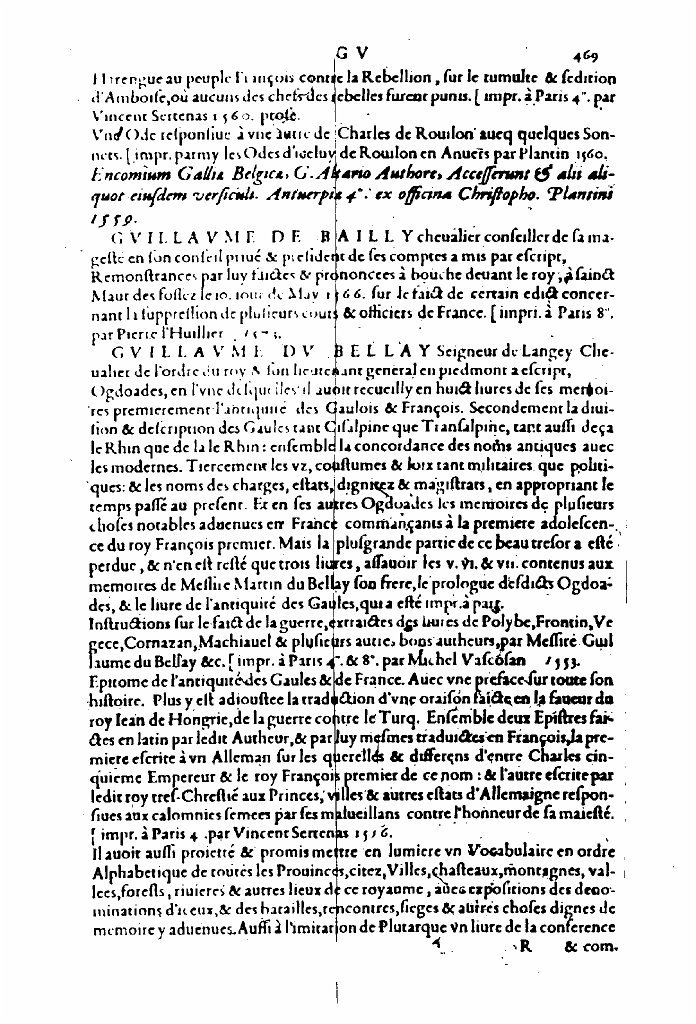 G V 469
Harengue au peuple François contre la Rebellion, ſur le tumulte & ſedition
d'Amboiſe, où aucuns des chefs des rebelles furent punis. [impr. à Paris 4°. par
Vincent Sertenas 1560. proſe.
Vnd Ode reſponſiue à vne autre de Charles de Rouillon auec quelques Son-
nets. [impr. parmy les Odes d'iceluy de Rouillon en Anuers par Plantin 1560.
Encomium Galliæ Belgicæ, G. Authore, Acceſſerunt & alii ali-
quot eiuſdem verſiculi. Antuerpiæ 4°. ex officina Chriſtopho. Plantini
1559.
GVILLAVME DE BAILLY cheualier conſeiller de ſa ma-
geſté en ſon conſeil priué & preſident de ſes comptes a mis par eſcript,
Remonſtrances par luy faictes & prononcees à bouche deuant le roy, à ſainct
Maur des foſſez le 10. iour de May 1566. ſur le faict de certain edict concer-
nant la ſuppreſſion de pluſieurs cours & officiers de France. [impri. à Paris 8°.
par Pierre l'Huillier 1573.
GVILLAVME DV BELLAY Seigneur de Langey Che-
ualier de l'ordre du roy & ſon lieutenant general en piedmont a eſcript,
Ogdoades, en l'vne deſquelles il auoit recueilly en huict liures de ſes memoi-
res premierement l'antiquité des Gaulois & François. Secondement la diui-
ſion & deſcription des Gaules tant Ciſalpine que Tranſalpine, tant auſſi deça
le Rhin que de la le Rhin: enſemble la concordance des noms antiques auec
les modernes. Tiercement les vz, couſtumes & loix tant militaires que politi-
ques: & les noms des charges, eſtats, dignitez & magiſtrats, en appropriant le
temps paſſé au preſent. Et en ſes autres Ogdoades les memoires de pluſieurs
choſes notables aduenues en France commançants à la premiere adoleſcen-
ce du roy François premier. Mais la pluſgrande partie de ce beau treſor a eſté
perdue, & n'en eſt reſté que trois liures, aſſauoir les v. vi. & vii. contenus aux
memoires de Meſſire Martin du Bellay ſon frere, le prologue deſdicts Ogdoa-
des, & le liure de l'antiquité des Gaules, qui a eſté impr. à paris.
Inſtructions ſur le faict de la guerre, extraictes des liures de Polybe, Frontin, Ve
gece, Cornazan, Machiauel & pluſieurs autres bons autheurs, par Meſſire Guil
laume du Bellay &c. [impr. à Paris 4°. & 8°. par Michel Vaſcoſan 1553.
Epitome de l'antiquité des Gaules & de France. Auec vne preface ſur toute ſon
hiſtoire. Plus y eſt adiouſtee la traduction d'vne oraiſon faicte en la faueur du
roy Iean de Hongrie, de la guerre contre le Turq. Enſemble deux Epiſtres fai-
ctes en latin par ledit Autheur, & par luy meſmes traduictes en François, la pre-
miere eſcrite à vn Alleman ſur les querelles & differens d'entre Charles cin-
quieme Empereur & le roy François premier de ce nom: & l'autre eſcrite par
ledit roy treſ-Chreſtié aux Princes, villes & autres eſtats d'Allemaigne reſpon-
ſiues aux calomnies ſemees par ſes malueillans contre l'honneur de ſa maieſté.
[impr. à Paris 4. par Vincent Sertenas
Il auoit auſſi proietté & promis mettre en lumiere vn Vocabulaire en ordre
Alphabetique de toutes les Prouinces, citez, Villes, chaſteaux, montagnes, val-
lees, foreſts, riuieres & autres lieux de ce royaume, auec expoſitions des deno-
minations d'iceux, & des batailles, rencontres, ſieges & autres choſes dignes de
memoire y aduenues. Auſſi à l'imitation de Plutarque vn liure de la conference
R & com-